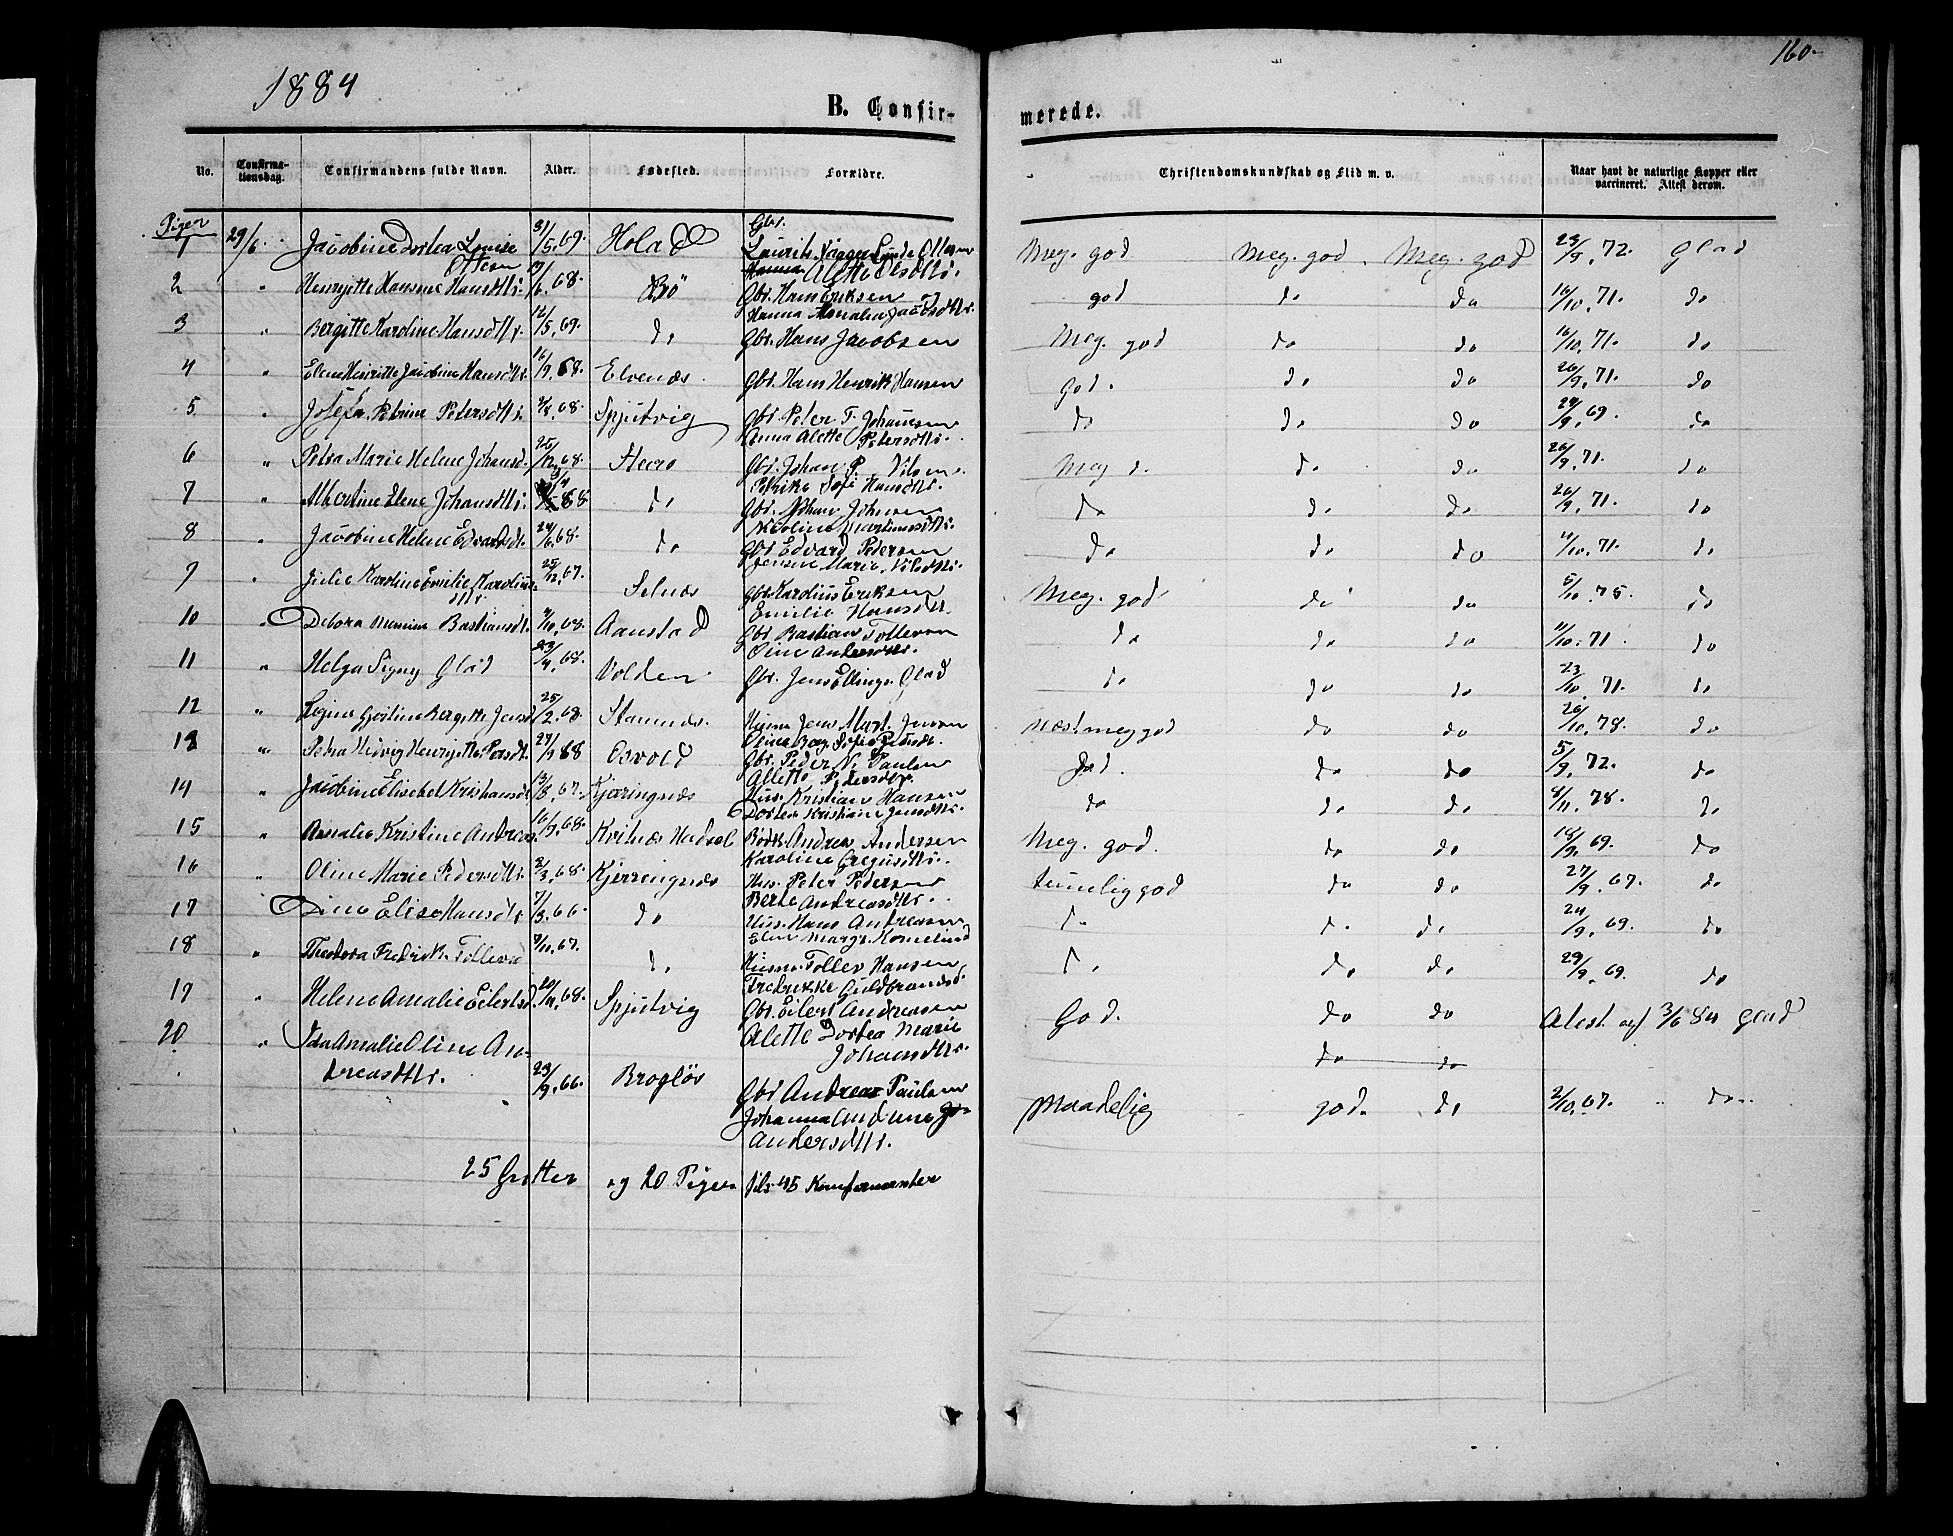 1884
160
B. Confir-
merede.
No. Confirma-tionsdag. Confirmandens fulde Navn. Alder. Fødested. Forældre. Christendomskundskab og Flid m. v. Naar havt de naturlige Kopper eller vaccineret. Attest derom.
Piger
1 29/6 Jacobine Dortea Louise Ottesen 31/5 69. Hola Gbr. Laurits Lunde Ottesen Alette Olsdttr. Meg. god Meg. god Meg. god 23/9. 72. Glad
2 " Henrijette Hansine Hansdttr. 68. Bö Gbr. Hans Eriksen og Hanna Amalia Jacobsdttr. god do do 16/10. 71. do
3 " Bergitte Karoline Hansdttr. 12/5. 69. do Gbr. Hans Jacobsen Meg. god do do 16/10. 71. do
4 " Elene Henritte Jacobine Hansdttr. 16/9. 68. Elvenæs Gbr. Hans Henrik Hansen god. do do 26/9. 71. do
5 " Josefa Petrine Petersdttr. 68. Spjutvig Gbr. Peter T. Johansen Anna Alette Petersdttr. do do do 24/9. 69. do
6 " Petra Marie Helene Johansd. 25/12. 68. Steiro Gbr. Johan P. Nilsen Sofi Hansdttr. Meg d. do do 26/9. 71. do
7 " Albertine Elene Johansdttr. 68 do Gbr. Johan Johnsen Nicoline Martinusdttr. do do do 26/9. 71. do
8 " Jacobine Helene Edvardsdt. 24/6. 68. do Gbr. Edvard Pedersen Jensine Marie Nilsdttr. do do do 4/10. 71. do
9 " Julie Karoline Emilie Karoliusdttr. 25/12. 67. Selnæs Gbr. Karolius Eriksen Emilie Hansdttr. Meg. god do do 5/10. 75. do
10 " Debora Bastiansdt. 9/10. 68. Aanstad Gbr. Bastian Tollevsen Oline Andersdttr. do do do 11/10. 71. do
11 " Helga Signy Glad 23/4. 68. Volden Gbr. Jens Ellings. Glad do do do 23/10. 71. do
12 " Bergitte Jensd. 25/2. 68. Stamnæs. Jens Mart. Jensen næst. meg god do do 26/10. 78. do
13 " Petra Hedvig Henrijette Persdt. 24/9 68 Osvold Gbr. Peder N. Paulsen Alette Pedersdtr. god. do do 5/9. 72. do
14 " Jacobine Elisebet Kristiansdt. 13/8. 67. Kjæringnæs Hus. Kristian Hansen Dortea Kristiane Jensdttr. do do do 8/11. 78. do
15 " Amalie Kristine Andreas. 16/9. 68. Kvitnæs Hadsel Andreas Andersen Karoline Gregusdttr. Meg. god. do do 18/9. 69. do
16 " Oline Marie Pedersdttr. 2/3. 68. Kjerringnæs Hus. Peter Pedersen Berte Andreasdttr. temelig god do do 27/9. 67. do
17 " Dina Elise Hansdtr 7/3. 66. do Hus. Hans Andreasen Elen Margr. Korneliusd do do do 24/9. 69. do
18 " Theodora Fredrik. Tollevsd 7/11. 67. do Husm. Tollev Hansen Fredrikke Guldbrandsd. do do do 29/9. 69. do
19 " Helene Amalie Eilertsd. 20/11. 68. Spjutvig Gbr. Eilert Andreasen Alette Dortea Marie Johansdttr. God. do do Atest. af 3/6 84 Glad
do do
20 " Ida Amalie Oline Andreasdttr. 23/9. 66. Brogløs Gbr. Andreas Paulsen Johanna Andersdttr. Maadelig god. do 2/10. 67. do
25 Gutter og 20 Piger tils. 45 Konfirmanter